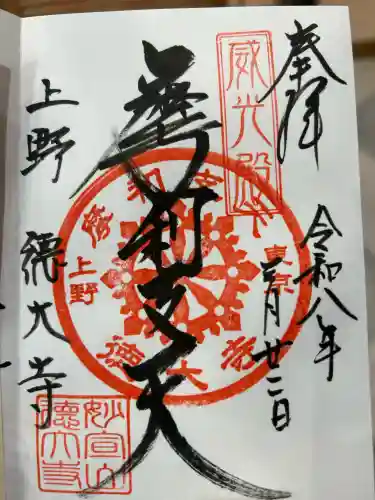 奉拝
令和八年
二月廿二日
威光殿
摩利支天
東京
上野
徳大寺
上野 徳大寺
妙宣山
徳大寺